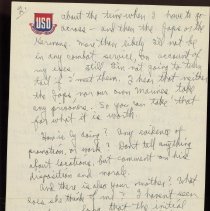 2.
USO
about the time when I have to go
across - and then the Japs or the
Germans. More than likely I'll not be
in any combat service, on account of
my eyes. Still I'm not going to
if I meet them. I hear that neither
the Japs nor our own Marines take
any prisoners. So you can take that
for what it is worth.
How is doing? Any evidence of
promotion, or work? Don't tell anything
about locations, but comment on his
disposition and morale.
And there is also your mother? What
does she think of my I haven't seen
that the initial